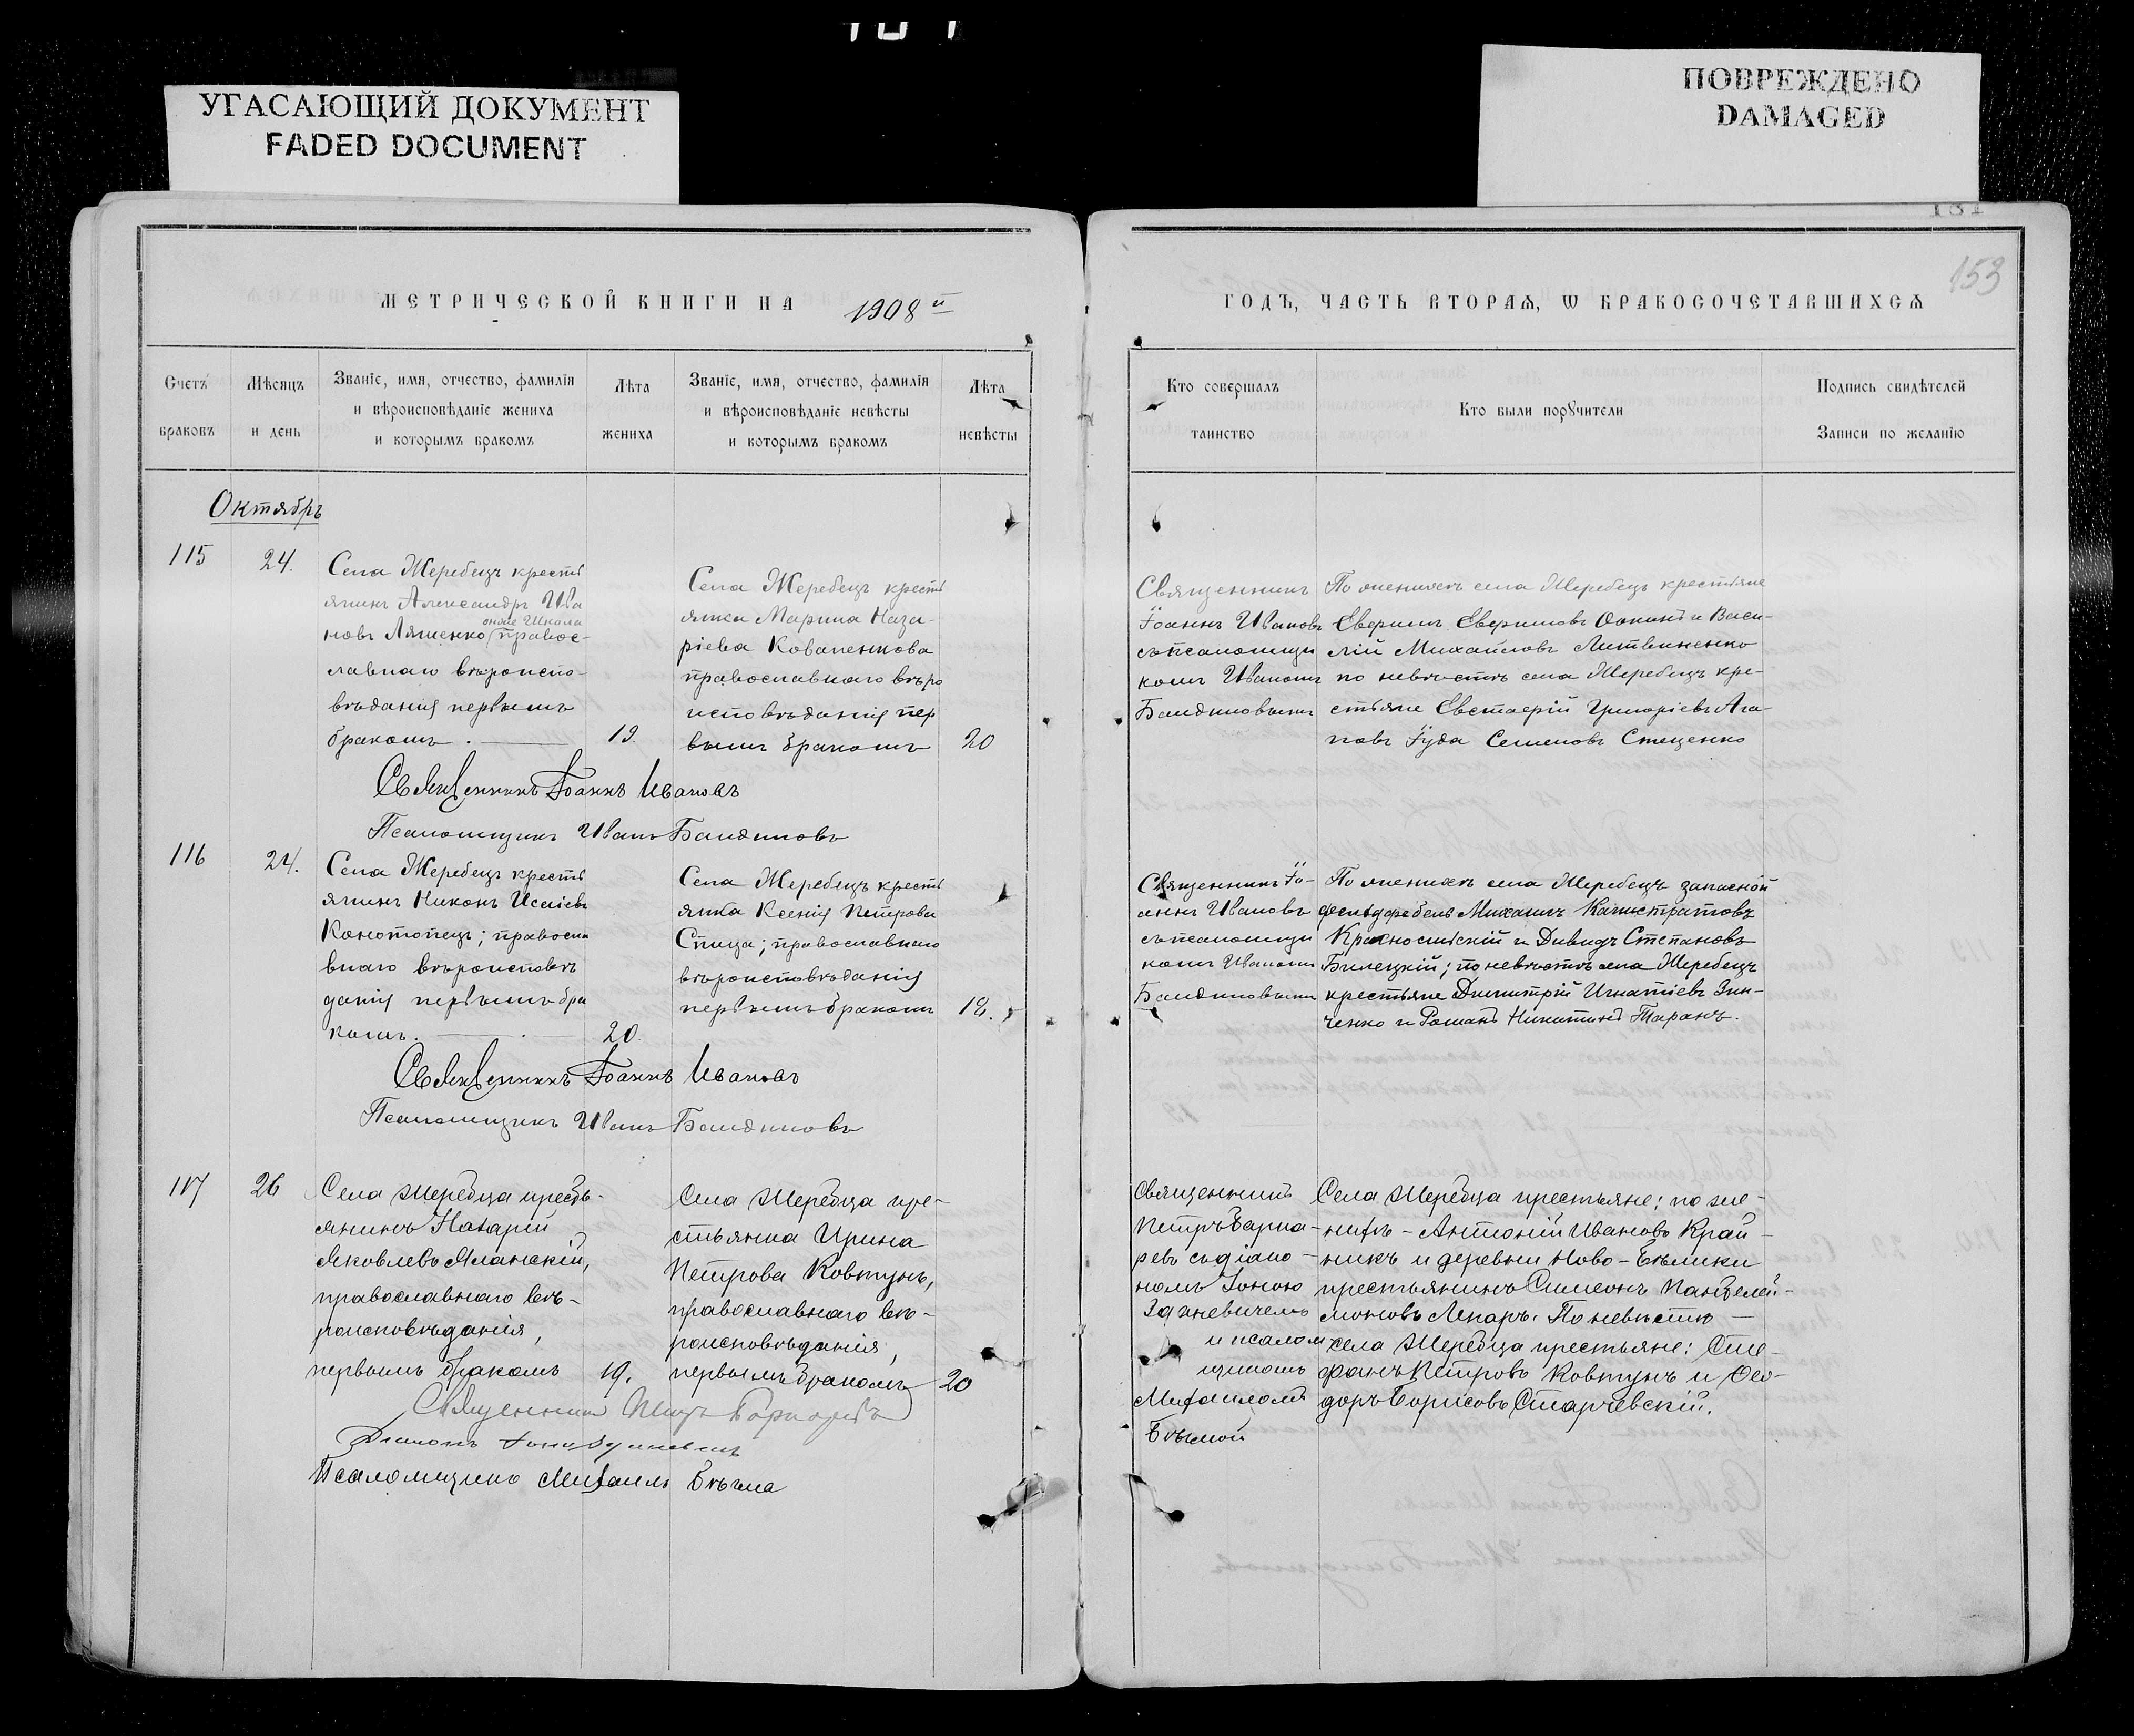 УГАСАЮЩИЙ ДОКУМЕНТ
FADED DOCUMENT
ПОВРЕЖДЕНО
DAMAGED
181
153
МЕТРИЧЕСКОЙ КНИГИ НА 1908 й
ГОДЪ, ЧАСТЬ ВТОРАѦ, Ѡ БРАКОСОЧЕТАВШИХСѦ
Счетъ
браковъ
Мѣсяцъ
и день
Званіе, имя, отчество, фамилія
и вѣроисповѣданіе жениха
и которымъ бракомъ
Лѣта
жениха
Званіе, имя, отчество, фамилія
и вѣроисповѣданіе невѣсты
и которымъ бракомъ
Лѣта
невѣсты
Кто совершалъ
таинство
Кто были порꙋчители
Подпись свидѣтелей
Записи по желанію
Октябрь
115
24.
Села Жеребецъ кресть
янинъ Александръ Ива
онъ же Школа
новъ Ляшенко (правос-
лавнаго вѣроиспо-
вѣданія первымъ
бракомъ.
19.
Села Жеребецъ кресть
янка Марина Наза-
ріева Коваленкова
православнаго вѣро
исповѣданія пер
вымъ бракомъ
20
Священникъ
Іоаннъ Ивановъ
съ псаломщи
комъ Иваномъ
Бандиновымъ
По женихѣ села Жеребецъ крестьяне
Аверкій
Василій Михайловъ Литвиненко
по невѣстѣ села Жеребецъ кре-
стьяне Евстафій Григоріевъ Ага-
повъ Іуда Семеновъ Стеценко
Священникъ Іоаннъ Ивановъ
Псаломщикъ Иванъ Бандиновъ
116
24.
Села Жеребецъ кресть
янинъ Никонъ Исаіевъ
Конотопецъ; правосла
внаго вѣроисповѣ
данія первымъ бра
комъ.
20.
Села Жеребецъ кресть
янка Ксенія Петрова
Спица; православнаго
вѣроисповѣданія
первымъ бракомъ
18.
Священникъ Іо-
аннъ Ивановъ
съ псаломщи
комъ Иваномъ
Бандиновымъ
По женихѣ села Жеребецъ запасной
фельдфебель Михаилъ Калистратовъ
Красносельскій и Давидъ Степановъ
Билецкій; по невѣстѣ села Жеребецъ
крестьяне Димитрій Игнатіевъ Зин-
ченко и Романъ Никитинъ Таранъ.
Священникъ Іоаннъ Ивановъ
Псаломщикъ Иванъ Бандиновъ
117
26
Села Жеребца кресть-
янинъ Назарій
Яковлевъ Яланскій,
православнаго вѣ-
роисповѣданія,
первымъ бракомъ
19.
Села Жеребца кре-
стьянка Ирина
Петрова Ковтунъ,
православнаго вѣ-
роисповѣданія,
первымъ бракомъ
20
Священникъ
Петръ Барна-
ревъ съ діако-
номъ Іоною
Зданевичемъ
и псалом
щикомъ
Михаиломъ
Бѣьмой
Села Жеребца крестьяне: по же-
нихѣ - Антоній Ивановъ Край-
никъ и деревни Ново-
крестьянинъ Симеонъ Пантелей-
моновъ Лекарь. По невѣстѣ -
села Жеребца крестьяне: Сте-
фанъ Петровъ Ковтунъ и Ѳео-
доръ Борисовъ Старчевскій.
Священникъ Петръ
Діаконъ Іона Зданевичъ
Псаломщикъ Михаилъ